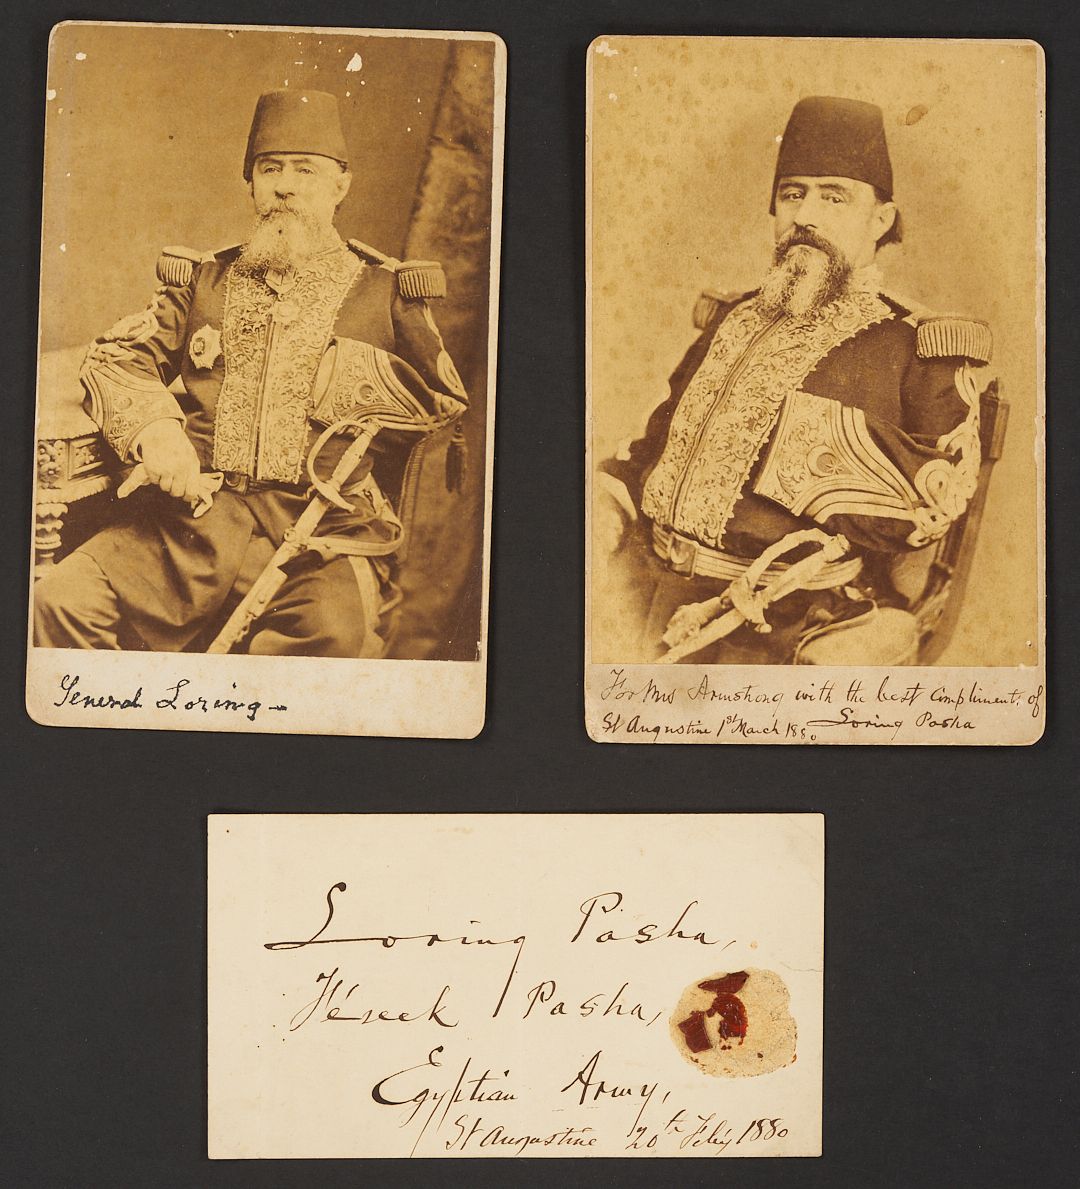 General Loring-
For Mrs Armstrong with the best compliments of
St Augustine 1st March 1880 Loring Pasha
Loring Pasha,
Féreek Pasha,
Egyptian Army,
St Augustine 20th Feby 1880